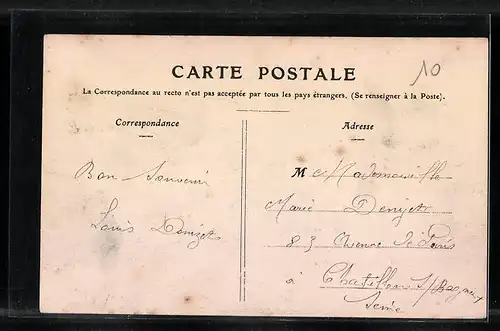 10
CARTE POSTALE
La Correspondance au recto n'est pas acceptée par tous les pays étrangers. (Se renseigner à la Poste).
Correspondance
Adresse
Bon Souvenir
Louis Denizet
M Mademoiselle
Marie Denizet
83 Avenue de Paris
à Chatillon s/Bagneux
Seine